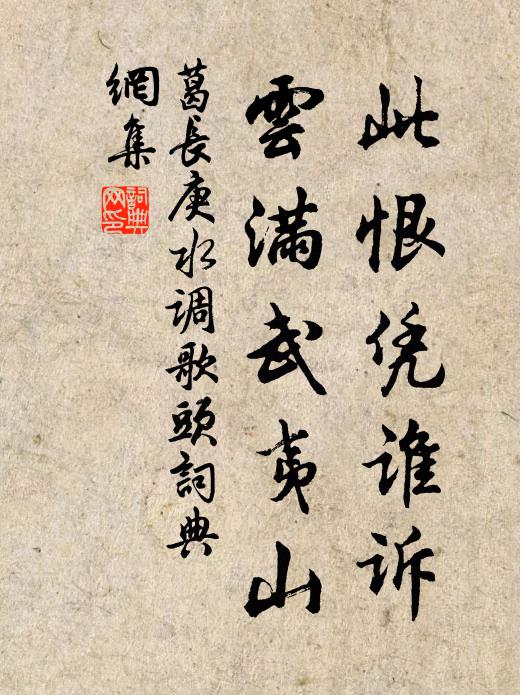 此恨凭谁诉
雲满武夷山
葛長庚水调歌頭詞典
網集
詞典网印